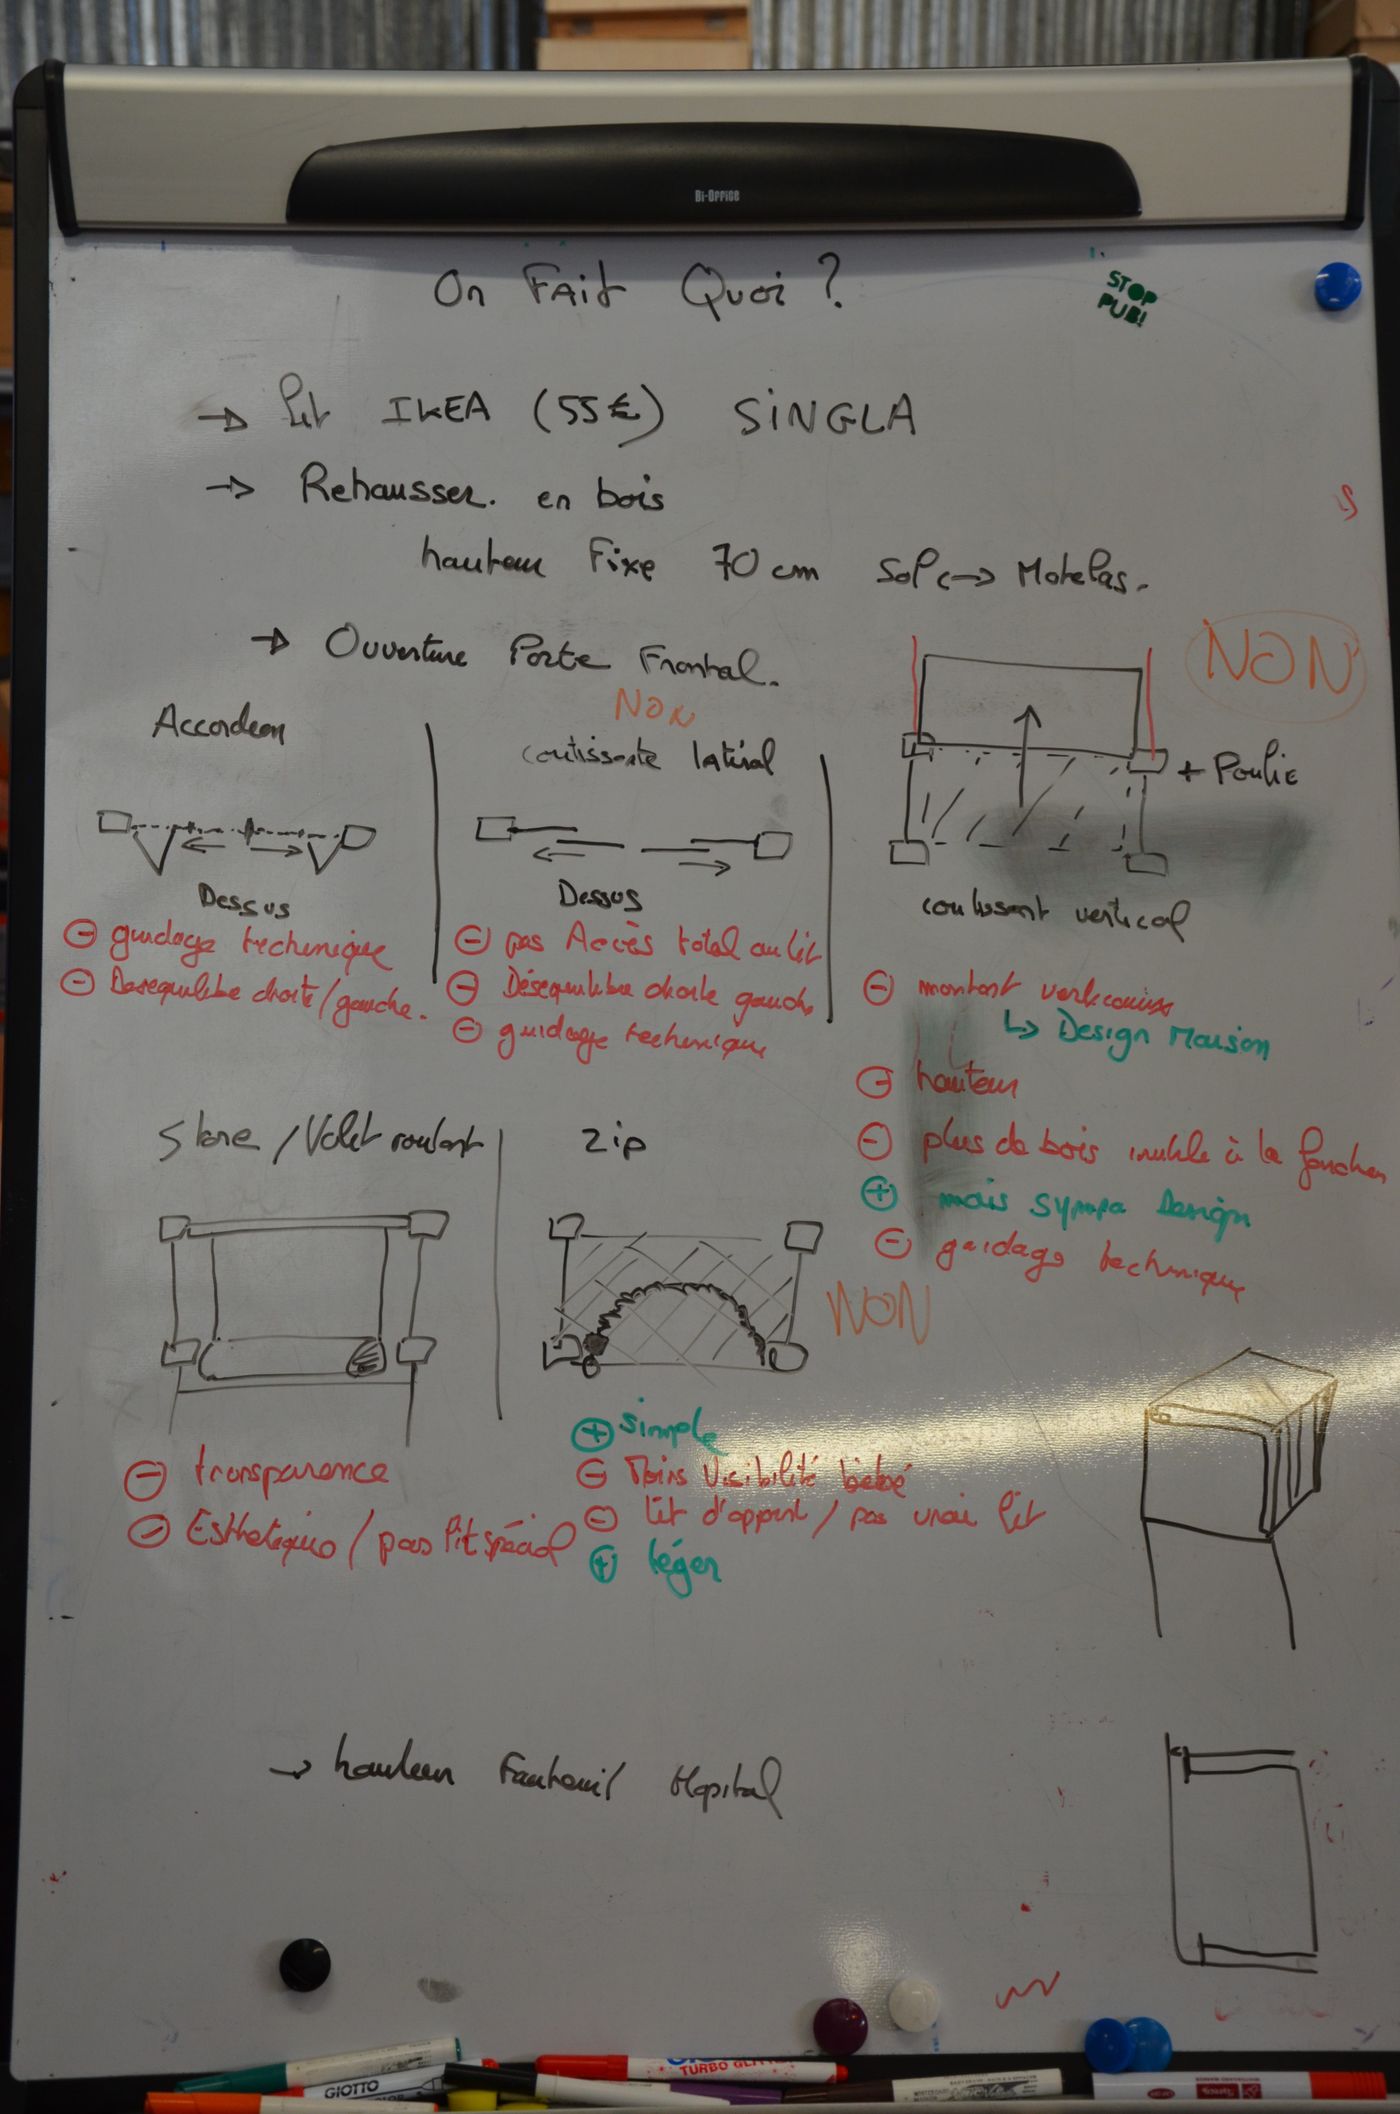 Bi-Office
On Fait Quoi ?
STOP
PUB!
→ lit IKEA (55€) SiNGLA
→ Rehausser. en bois
hauteur Fixe 70 cm Sol ↔ Matelas.
→ Ouverture Porte Frontal.
NON
Accordeon
Dessus
⊖ guidage technique
⊖ Desequilibre droite/gauche.
NON
coulissante latéral
Dessus
⊖ pas Accès total au lit
⊖ Déséquilibre droite gauche
⊖ guidage technique
+ Poulie
coulissant vertical
⊖ montant verticaux
↳ Design Maison
⊖ hauteur
⊖ plus de bois inutile à la fonction
⊕ mais sympa Design
⊖ guidage technique
Store / Volet roulant
⊖ transparence
⊖ Esthetique / pas lit spécial
zip
NON
⊕ simple
⊖ Moins Visibilité bébé
⊖ lit d'appoint / pas vrai lit
⊕ léger
→ hauteur Fauteuil Hopital
GIOTTO
TURBO